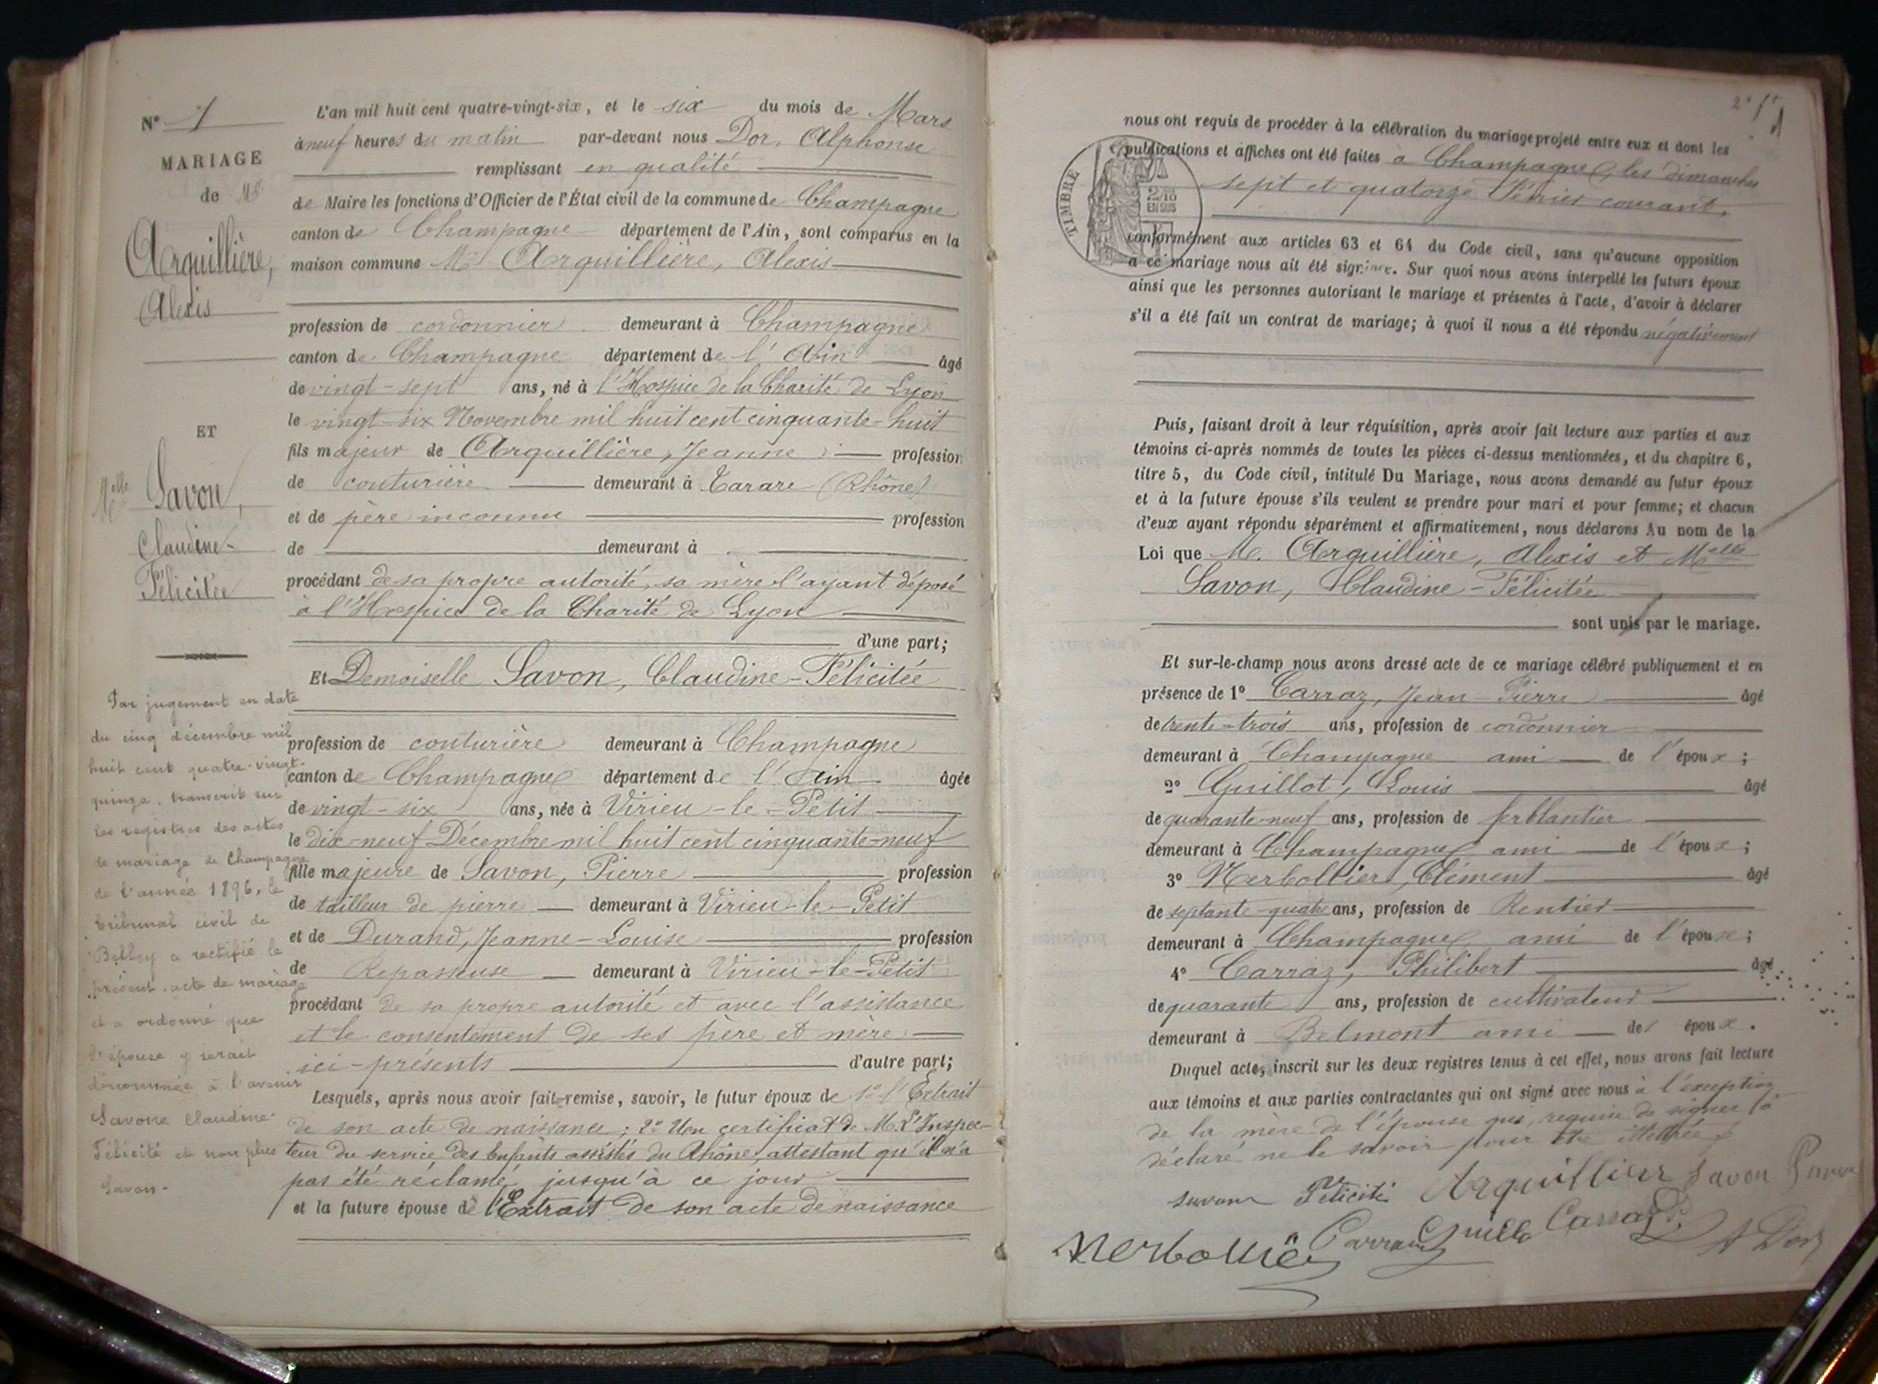 N° 1
MARIAGE
de Mr
Arquillière,
Alexis
ET
Melle Savon,
Claudine-
Félicitée
Par jugement en date
du cinq décembre mil
huit cent quatre-vingt-
quinze, transcrit sur
les registres des actes
de mariage de Champagne
de l'année 1896, le
tribunal civil de
Belley a rectifié le
présent acte de mariage
et a ordonné que
l'épouse y serait
dénommée à l'avenir
Savone Claudine-
Félicité et non plus
Savon.
L'an mil huit cent quatre-vingt-six, et le six du mois de Mars
à neuf heures du matin par-devant nous Dor, Alphonse
remplissant en qualité
de Maire les fonctions d'Officier de l'État civil de la commune de Champagne
canton de Champagne département de l'Ain, sont comparus en la
maison commune Mr Arquillière, Alexis
profession de cordonnier demeurant à Champagne
canton de Champagne département de l'Ain âgé
de vingt-sept ans, né à l'Hospice de la Charité de Lyon
le vingt-six Novembre mil huit cent cinquante-huit
fils majeur de Arquillière, Jeanne profession
de couturière demeurant à Tarare (Rhône)
et de père inconnu profession
de demeurant à
procédant de sa propre autorité, sa mère l'ayant déposé
à l'Hospice de la Charité de Lyon
d'une part;
Et Demoiselle Savon, Claudine-Félicitée
profession de couturière demeurant à Champagne
canton de Champagne département de l'Ain âgée
de vingt-six ans, née à Virieu-le-Petit
le dix-neuf Décembre mil huit cent cinquante-neuf
fille majeure de Savon, Pierre profession
de tailleur de pierre demeurant à Virieu-le-Petit
et de Durand, Jeanne-Louise profession
de Repasseuse demeurant à Virieu-le-Petit
procédant de sa propre autorité et avec l'assistance
et le consentement de ses père et mère
ici-présents d'autre part;
Lesquels, après nous avoir fait remise, savoir, le futur époux de 1° l'Extrait
de son acte de naissance; 2° Un certificat de M. l'Inspec-
teur du service des Enfants assistés du Rhône, attestant qu'il n'a
pas été réclamé jusqu'à ce jour
et la future épouse de l'Extrait de son acte de naissance
TIMBRE
2/10
EN SUS
nous ont requis de procéder à la célébration du mariage projeté entre eux et dont les
publications et affiches ont été faites à Champagne, les dimanches
sept et quatorze Février courant,
conformément aux articles 63 et 64 du Code civil, sans qu'aucune opposition
à ce mariage nous ait été signifiée. Sur quoi nous avons interpellé les futurs époux
ainsi que les personnes autorisant le mariage et présentes à l'acte, d'avoir à déclarer
s'il a été fait un contrat de mariage; à quoi il nous a été répondu négativement
Puis, faisant droit à leur réquisition, après avoir fait lecture aux parties et aux
témoins ci-après nommés de toutes les pièces ci-dessus mentionnées, et du chapitre 6,
titre 5, du Code civil, intitulé Du Mariage, nous avons demandé au futur époux
et à la future épouse s'ils veulent se prendre pour mari et pour femme; et chacun
d'eux ayant répondu séparément et affirmativement, nous déclarons Au nom de la
Loi que M. Arquillière, Alexis et Melle
Savon, Claudine-Félicitée
sont unis par le mariage.
Et sur-le-champ nous avons dressé acte de ce mariage célébré publiquement et en
présence de 1° Carraz, Jean-Pierre âgé
de trente-trois ans, profession de cordonnier
demeurant à Champagne ami de l'époux;
2° Guillot, Louis âgé
de quarante-neuf ans, profession de ferblantier
demeurant à Champagne ami de l'époux;
3° Merbollier, Clément âgé
de septante-quatre ans, profession de Rentier
demeurant à Champagne ami de l'épouse;
4° Carraz, Philibert âgé
de quarante ans, profession de cultivateur
demeurant à Belmont ami de époux.
Duquel acte, inscrit sur les deux registres tenus à cet effet, nous avons fait lecture
aux témoins et aux parties contractantes qui ont signé avec nous à l'exception
de la mère de l'épouse qui, requise de signer, a
déclaré ne le savoir pour être illettrée
Savon Félicité Arquillier Savon Pierre
Merbollier Carraz Guillo Carraz A Dor